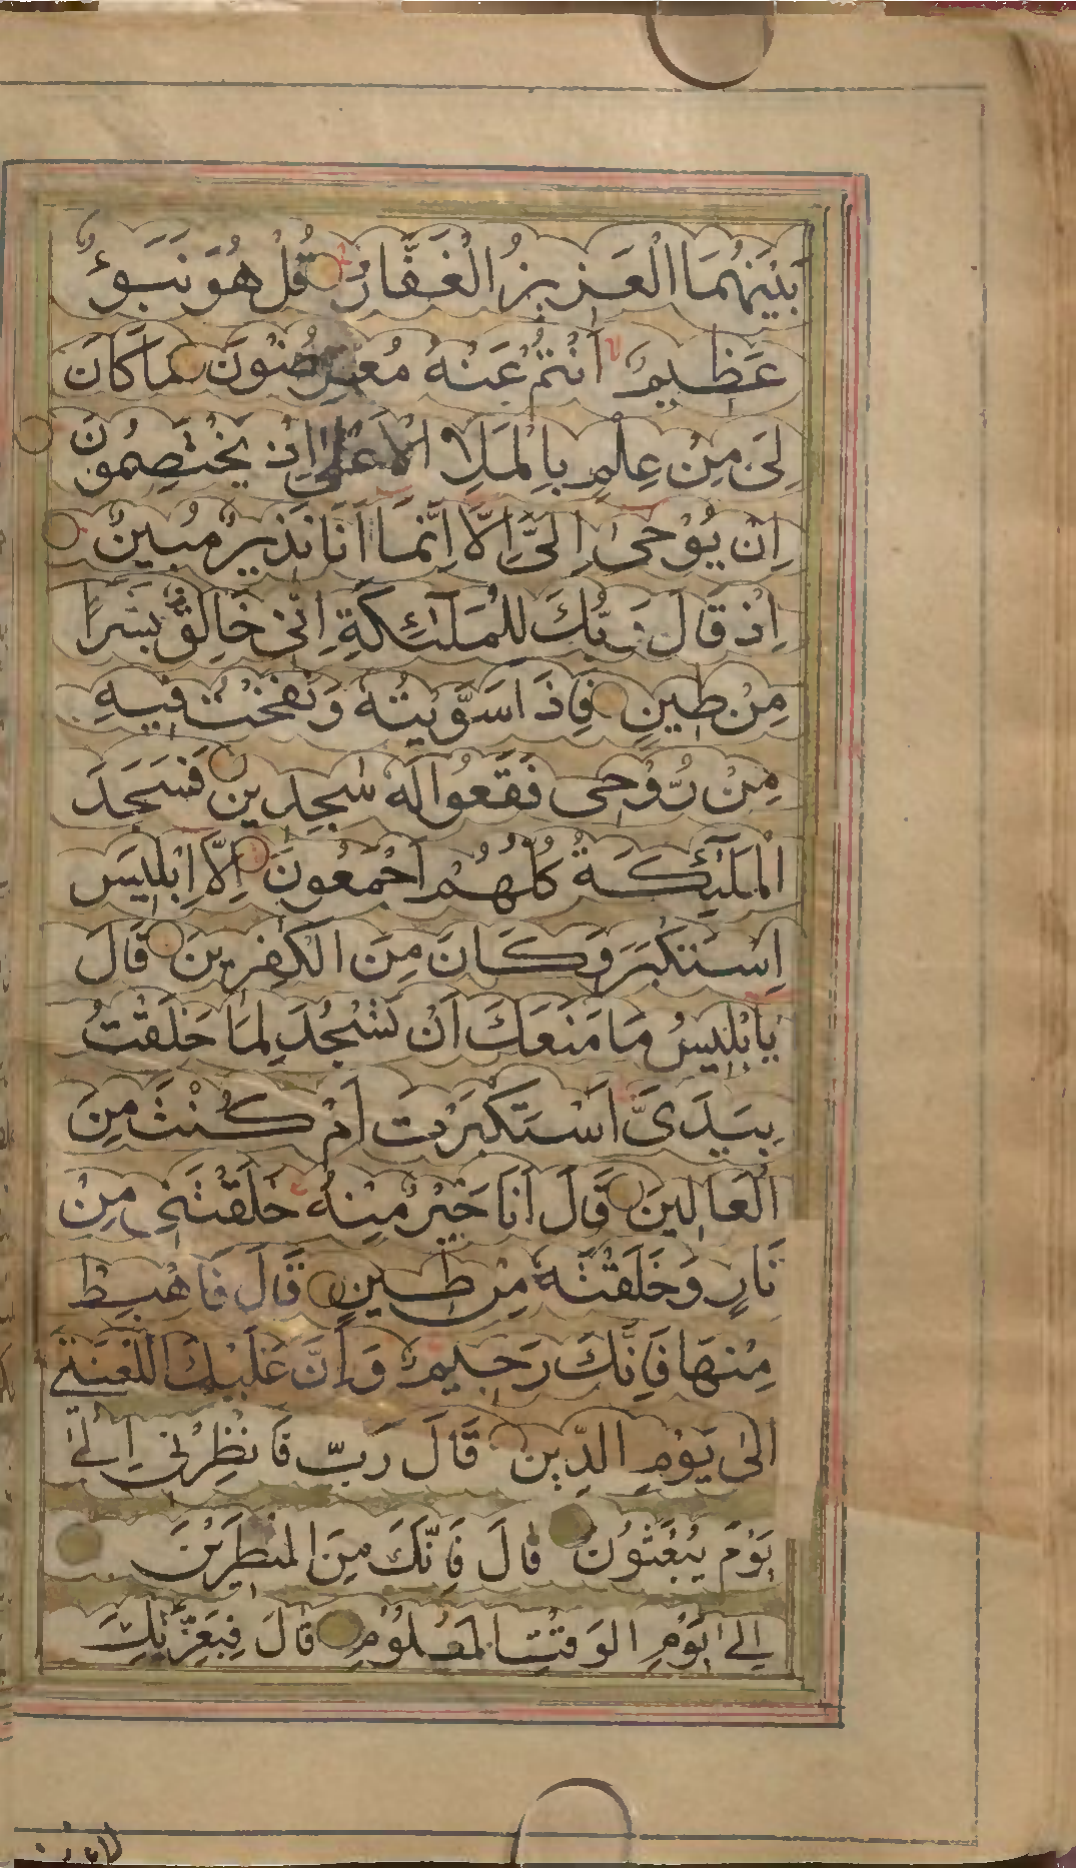 بَيْنَهُمَا الْعَزِيزُ الْغَفَّارُ قُلْ هُوَ نَبَؤٌ
عَظِيمٌ اَنْتُمْ عَنْهُ مُعْرِضُونَ مَا كَانَ
لِىَ مِنْ عِلْمٍ بِالْمَلَاِ الْاَعْلٰى اِذْ يَخْتَصِمُونَ
اِنْ يُوْحىٰ اِلَىَّ اِلَّا اِنَّمَا اَنَا نَذِيرٌ مُبِينٌ
اِذْ قَالَ رَبُّكَ لِلْمَلٰٓئِكَةِ اِنّى خَالِقٌ بَشَرًا
مِنْ طِينٍ فَاِذَا سَوَّيْتُهُ وَنَفَخْتُ فِيهِ
مِنْ رُوْحِى فَقَعُوا لَهُ سٰجِدِينَ فَسَجَدَ
الْمَلٰٓئِكَةُ كُلُّهُمْ اَجْمَعُونَ اِلَّا اِبْلِيسَ
اِسْتَكْبَرَ وَكَانَ مِنَ الْكٰفِرِينَ قَالَ
يَا بْلِيسُ مَا مَنَعَكَ اَنْ تَسْجُدَ لِمَا خَلَقْتُ
بِيَدَىَّ اَسْتَكْبَرْتَ اَمْ كُنْتَ مِنَ
الْعَالِينَ قَالَ اَنَا خَيْرٌ مِنْهُ خَلَقْتَنِى مِنْ
نَارٍ وَخَلَقْتَهُ مِنْ طِينٍ قَالَ فَاهْبِطْ
مِنْهَا فَاِنَّكَ رَجِيمٌ وَاِنَّ عَلَيْكَ اللَّعْنَتِى
اِلىٰ يَوْمِ الدِّينِ قَالَ رَبِّ فَانْظِرْنِى اِلىٰ
يَوْمِ يُبْعَثُونَ قَالَ فَاِنَّكَ مِنَ الْمُنْظَرِيْنَ
اِلىٰ يَوْمِ الْوَقْتِ الْمَعْلُوْمِ قَالَ فَبِعِزَّتِكَ